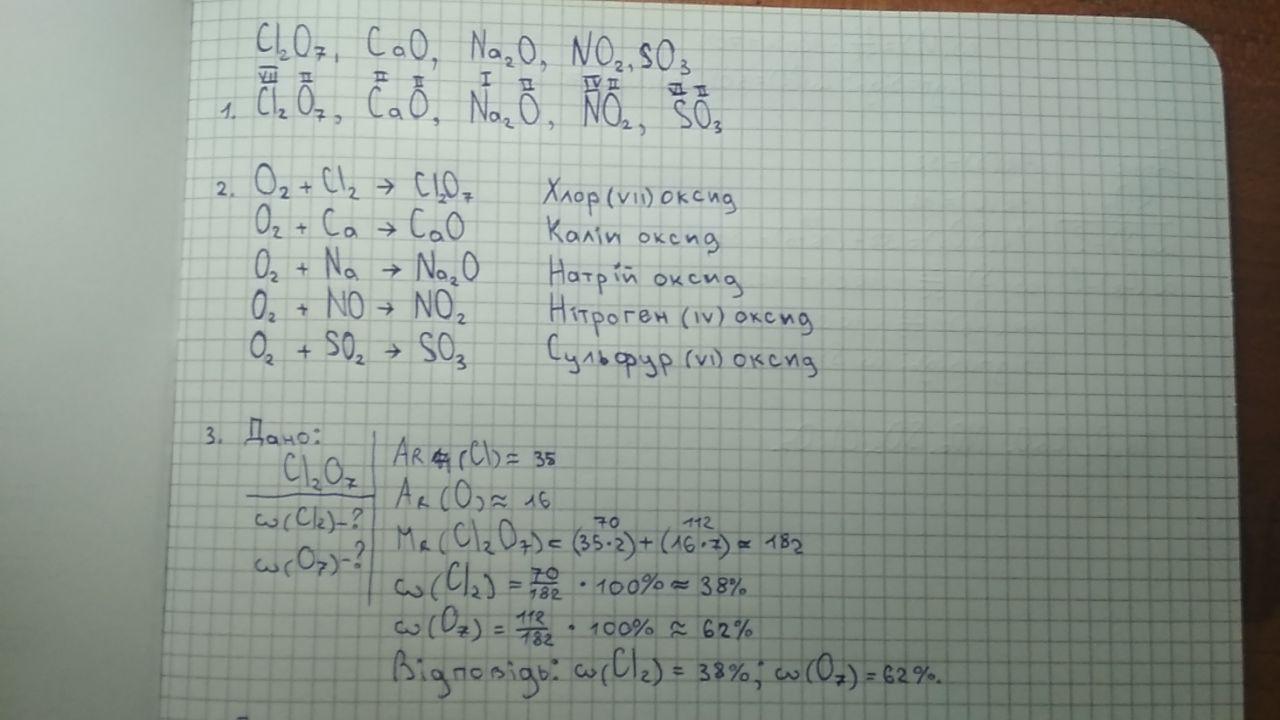 Cl₂O₇, CaO, Na₂O, NO₂, SO₃
VII II II II I II IV II VI II
1. Cl₂O₇, CaO, Na₂O, NO₂, SO₃
2. O₂ + Cl₂ → Cl₂O₇ Хлор (VII) оксид
O₂ + Ca → CaO Каліп оксид
O₂ + Na → Na₂O Натрій оксид
O₂ + NO → NO₂ Нітроген (IV) оксид
O₂ + SO₂ → SO₃ Сульфур (VI) оксид
3. Дано:
Cl₂O₇
ω(Cl₂)-?
ω(O₇)-?
AR (Cl) = 35
AR (O) ≈ 16
70 112
MR (Cl₂O₇) = (35·2)+(16·7) ≈ 182
ω(Cl₂) = 70/182 · 100% ≈ 38%
ω(O₇) = 112/182 · 100% ≈ 62%
Відповідь: ω(Cl₂) = 38%; ω(O₇) = 62%.